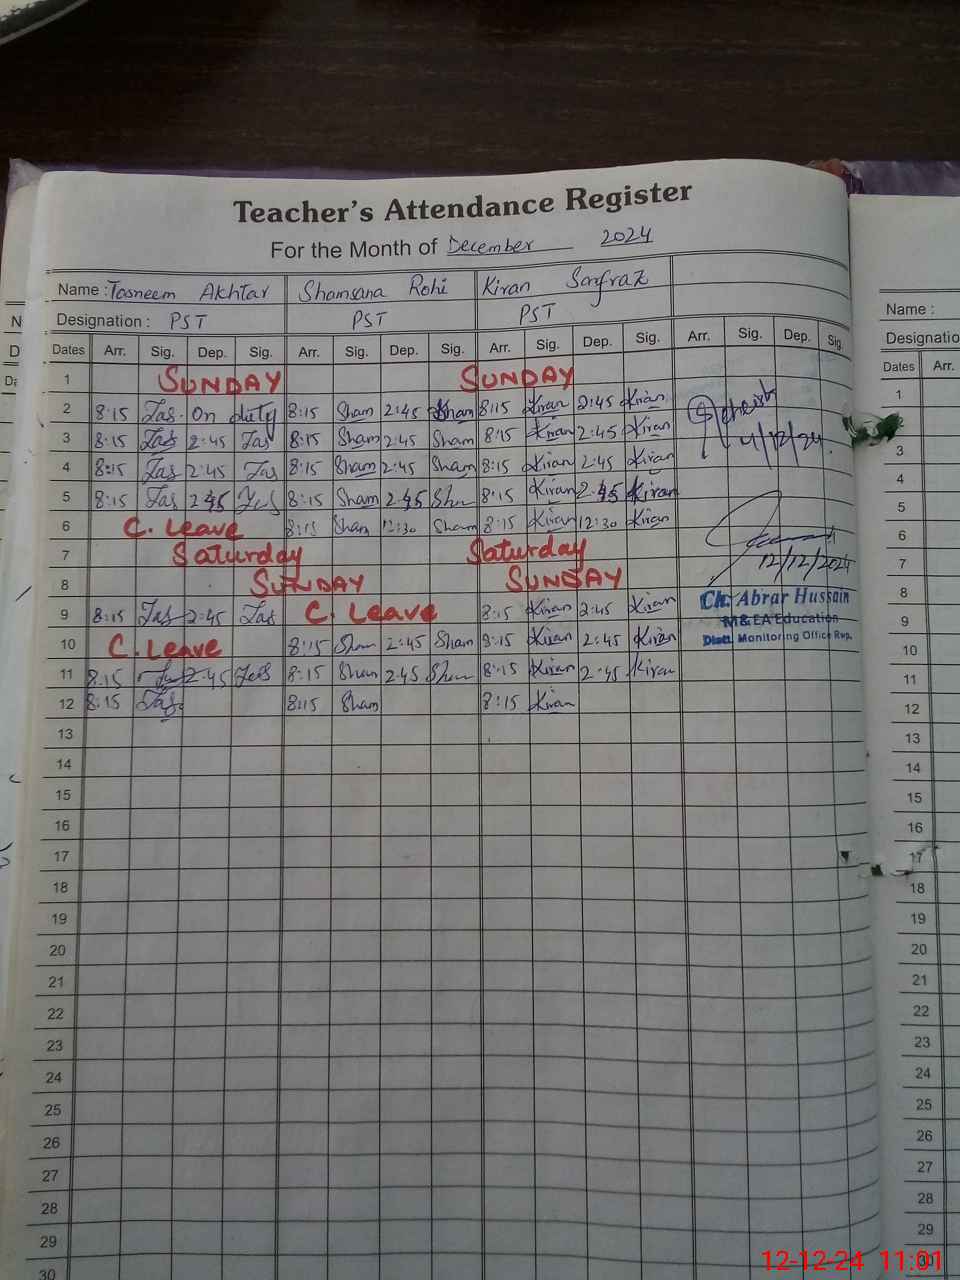 Teacher's Attendance Register
For the Month of December 2024
Name : Tasneem Akhtar Shamsana Rohi Kiran Sarfraz
Designation : PST PST PST
Dates Arr. Sig. Dep. Sig. Arr. Sig. Dep. Sig. Arr. Sig. Dep. Sig. Arr. Sig. Dep. Sig.
1 SUNDAY SUNDAY
2 8:15 Tas. On duty 8:15 Sham 2:45 Sham 8:15 Kiran 2:45 Kiran
3 8:15 Tas 2:45 Tas 8:15 Sham 2:45 Sham 8:15 Kiran 2:45 Kiran
4/12/24
4 8:15 Tas 2:45 Tas 8:15 Sham 2:45 Sham 8:15 Kiran 2:45 Kiran
5 8:15 Tas 2:45 Tas 8:15 Sham 2:45 Sham 8:15 Kiran 2:45 Kiran
6 C. Leave 8:15 Sham 12:30 Sham 8:15 Kiran 12:30 Kiran
7 Saturday Saturday
12/12/2024
8 SUNDAY SUNDAY
Ch. Abrar Hussain
M&EA Education
Distt. Monitoring Office Rwp.
9 8:15 Tas 2:45 Tas C. Leave 8:15 Kiran 2:45 Kiran
10 C. Leave 8:15 Sham 2:45 Sham 8:15 Kiran 2:45 Kiran
11 8:15 Tas 2:45 Tas 8:15 Sham 2:45 Sham 8:15 Kiran 2:45 Kiran
12 8:15 Tas. 8:15 Sham 8:15 Kiran
13
14
15
16
17
18
19
20
21
22
23
24
25
26
27
28
29
30
Name :
Designatio
Dates Arr.
1
3
4
5
6
7
8
9
10
11
12
13
14
15
16
17
18
19
20
21
22
23
24
25
26
27
28
29
30
12-12-24 11:01